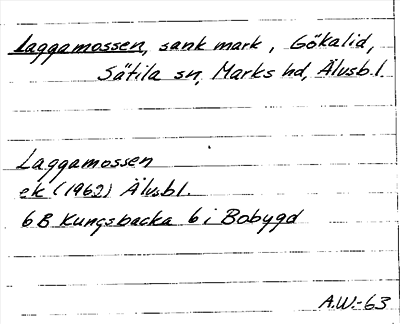 Laggamossen, sank mark, Gökalid,
Sätila sn, Marks hd, Älvsb.l.
Laggamossen
ek (1962) Älvsbl.
6B Kungsbacka 6i Bobygd
A.W.-63